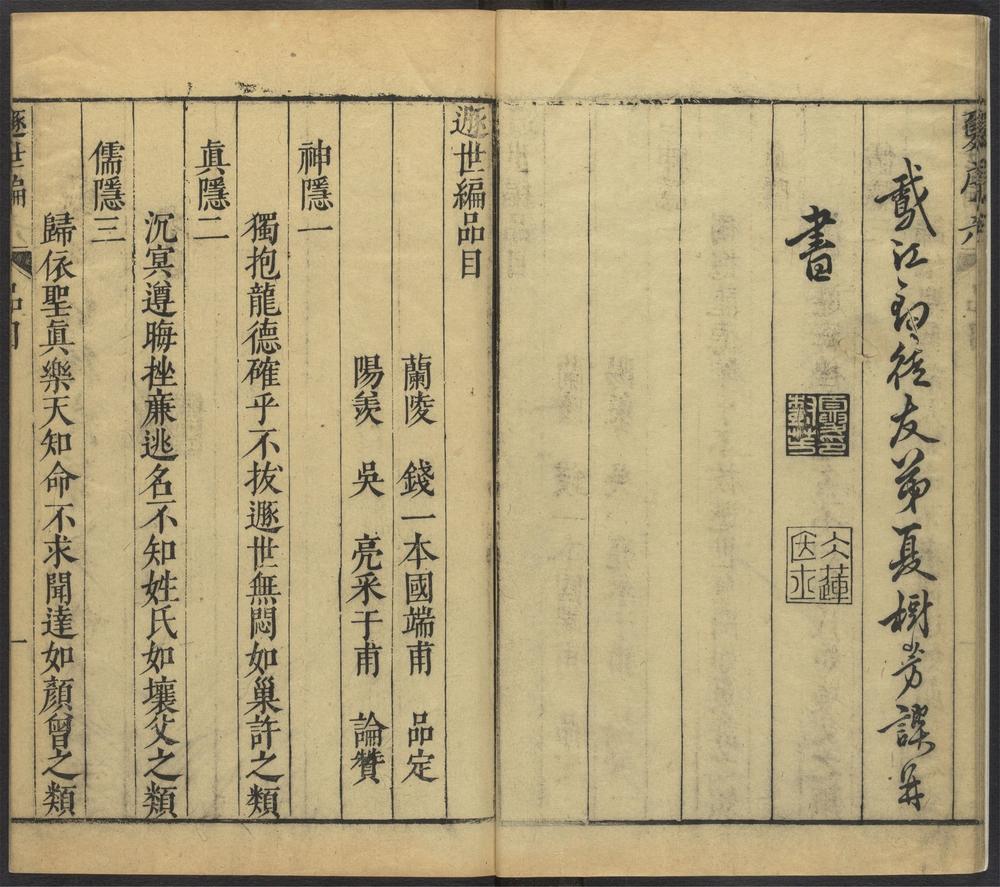 戲江釣徒友弟夏樹芳譔并
書
遯世編品目
蘭陵　錢一本國端甫　品定
陽羨　吳　亮采于甫　論贊
神隱一
獨抱龍德確乎不拔遯世無悶如巢許之類
眞隱二
沉冥遵晦挫亷逃名不知姓氏如壤父之類
儒隱三
歸依聖眞樂天知命不求聞達如顏曾之類
遯世編
品目
一